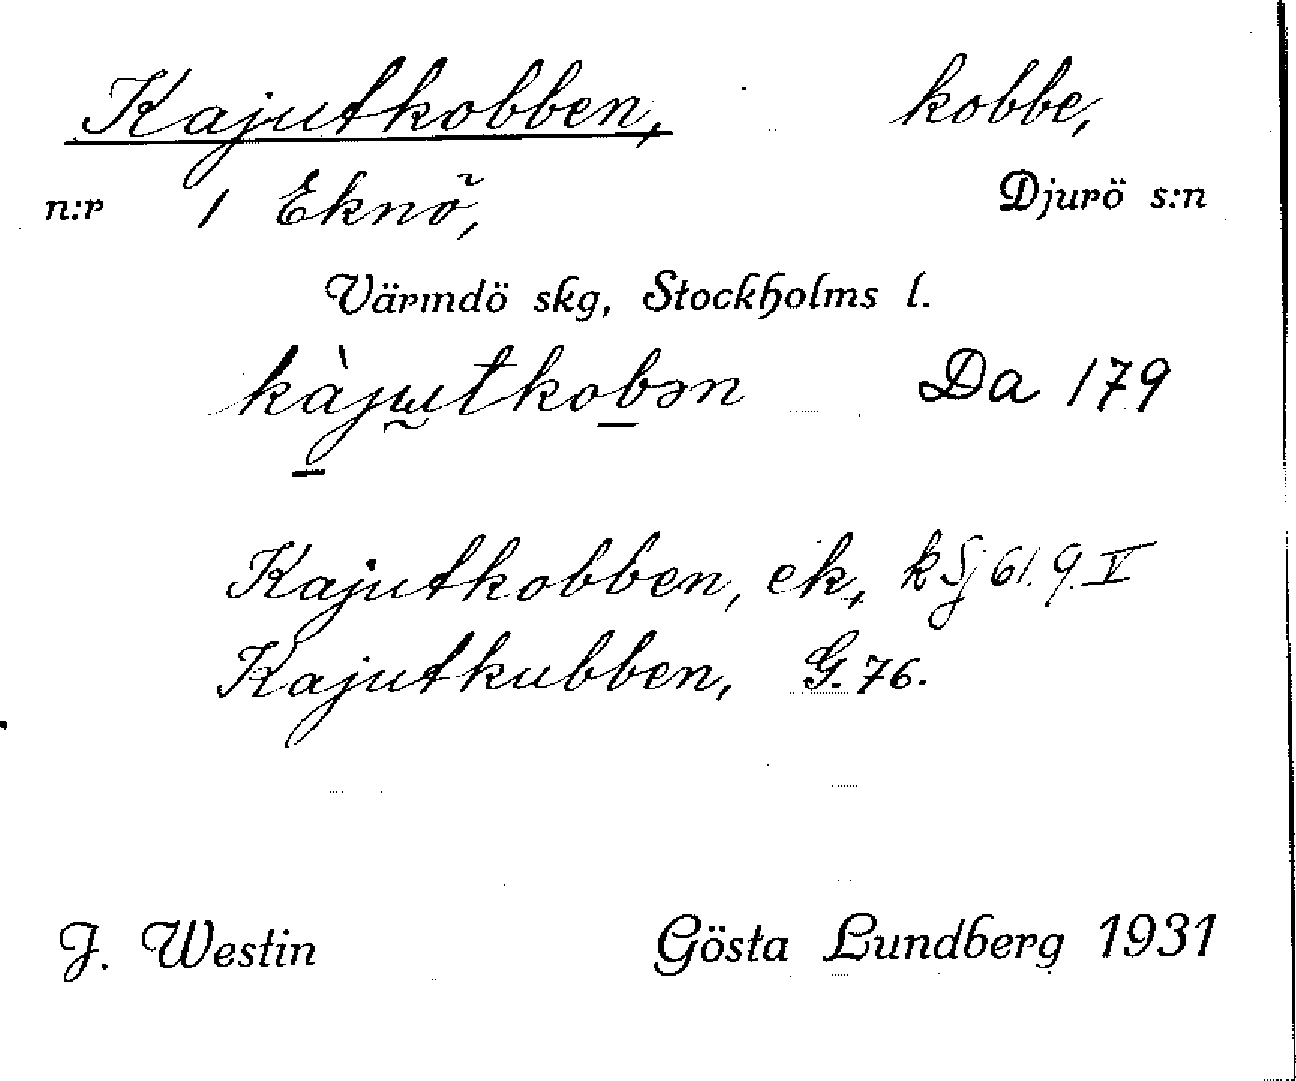 Kajutkobben, kobbe,
n:r 1 Eknö, Djurö s:n
Värmdö skg, Stockholms l.
kàjutkobən Da 179
Kajutkobben, ek, k Sj 61. 9. V
Kajutkubben, G. 76.
J. Westin Gösta Lundberg 1931